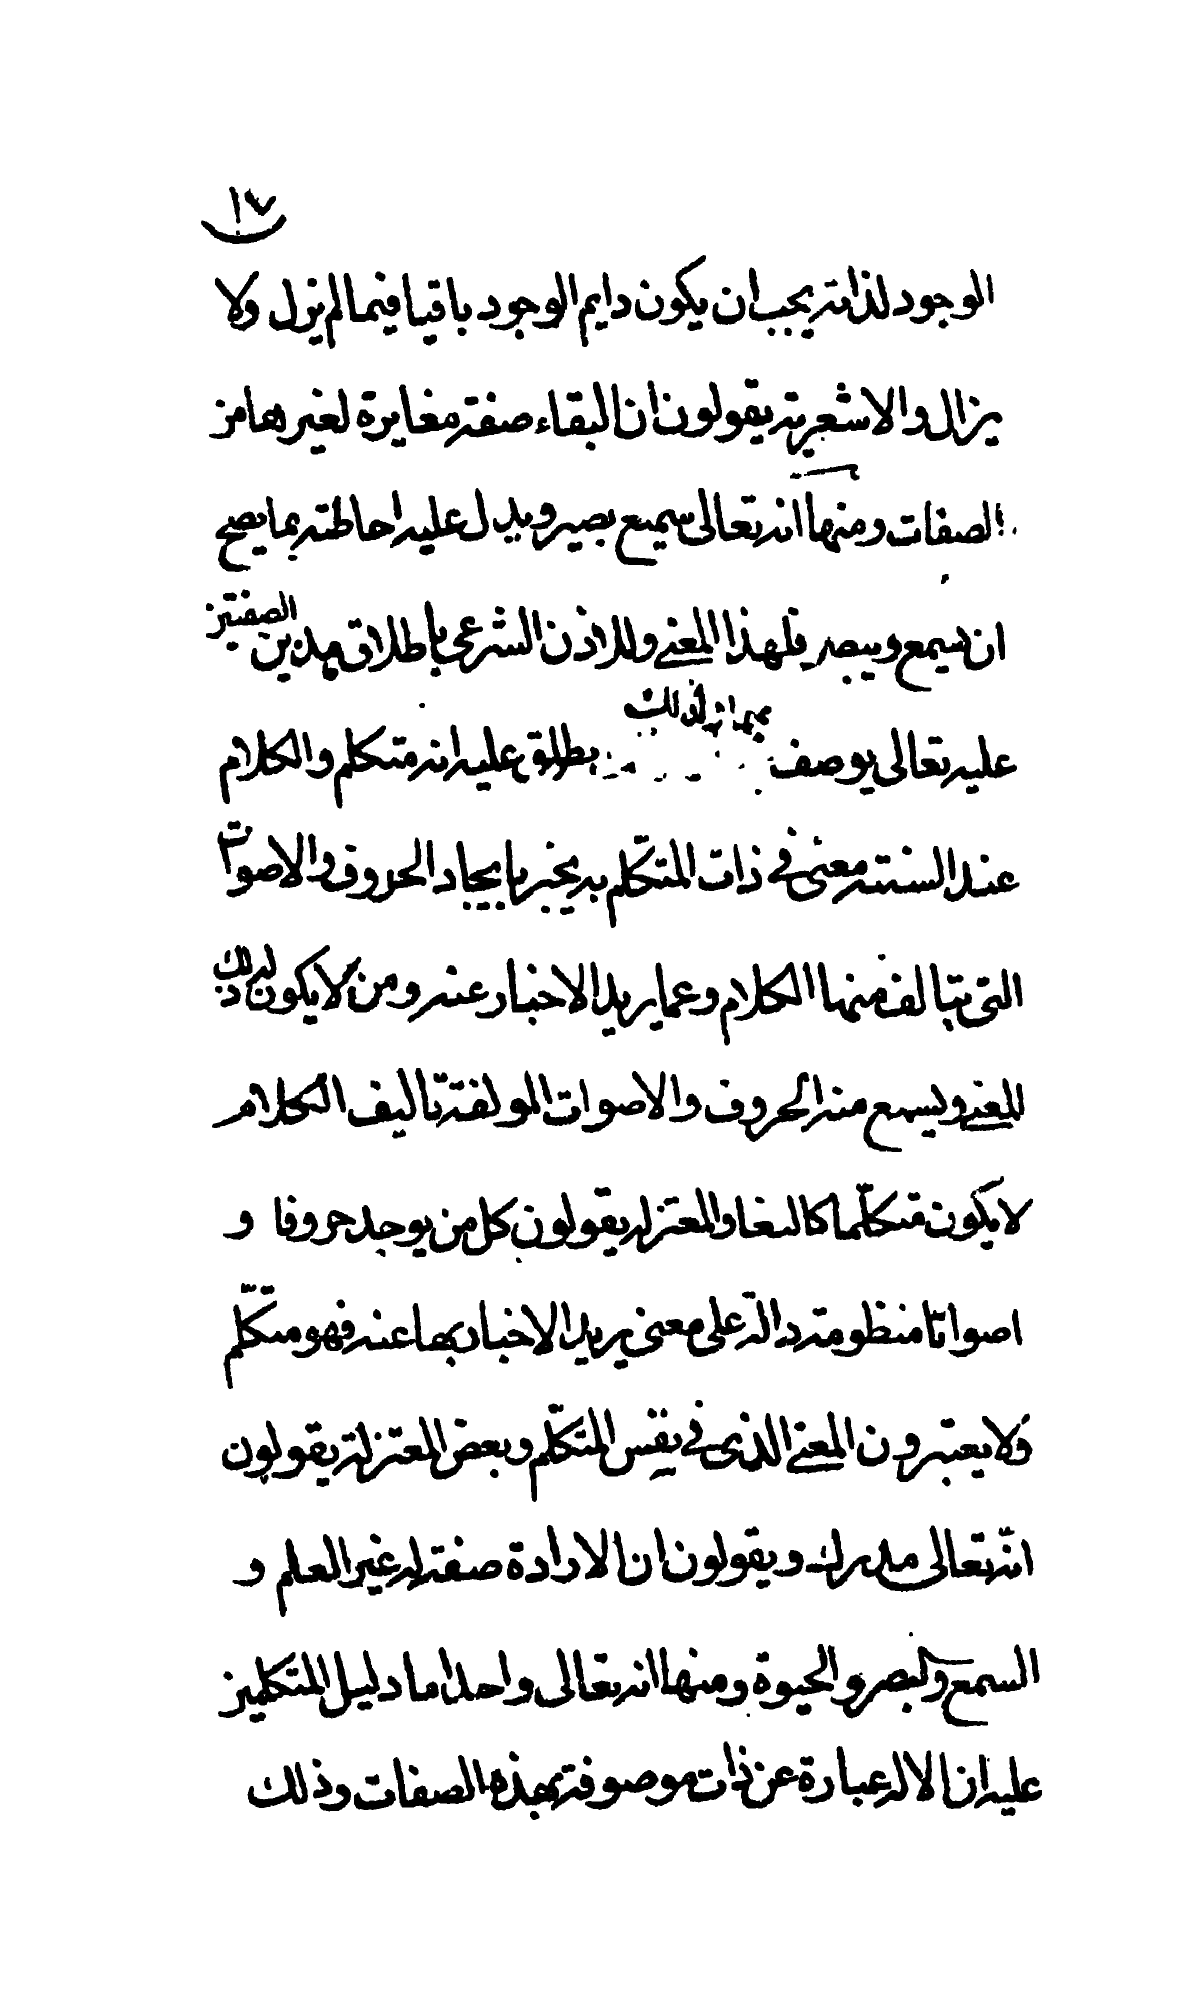 ١٧
الوجود لذاته يجب ان يكون دايم الوجود باقيا فيما لم يزل ولا
يزال والاشعرية يقولون ان البقاء صفة مغايرة لغيرها من
الصفات ومنها انه تعالى سميع بصير ويدل عليه احاطته بما يصح
ان يسمع ويبصر فلهذا المعنى وللاذن الشرعى باطلاق هذين الصفتين
عليه تعالى يوصف بهما وكذلك يطلق عليه انه متكلم والكلام
عند السنة معنى فى ذات المتكلم به يخبر بايجاد الحروف والاصوات
التى يتالف منها الكلام وعما يريد الاخبار عنه ومن لا يكون له ذلك
المعنى ويسمع منه الحروف والاصوات المولفة تاليف الكلام
لا يكون متكلّما كالببغا والمعتزلة يقولون كل من يوجد حروفا و
اصواتا منظومة دالّة على معنى يريد الاخبار بها عنه فهو متكلّم
ولا يعتبرون المعنى الذى فى نفس المتكلّم وبعض المعتزلة يقولون
انّه تعالى مدرك ويقولون ان الارادة صفة له غير العلم و
السمع والبصر والحيوة ومنها انه تعالى واحد اما دليل المتكلمين
عليه ان الاله عبارة عن ذات موصوفة بهذه الصفات وذلك